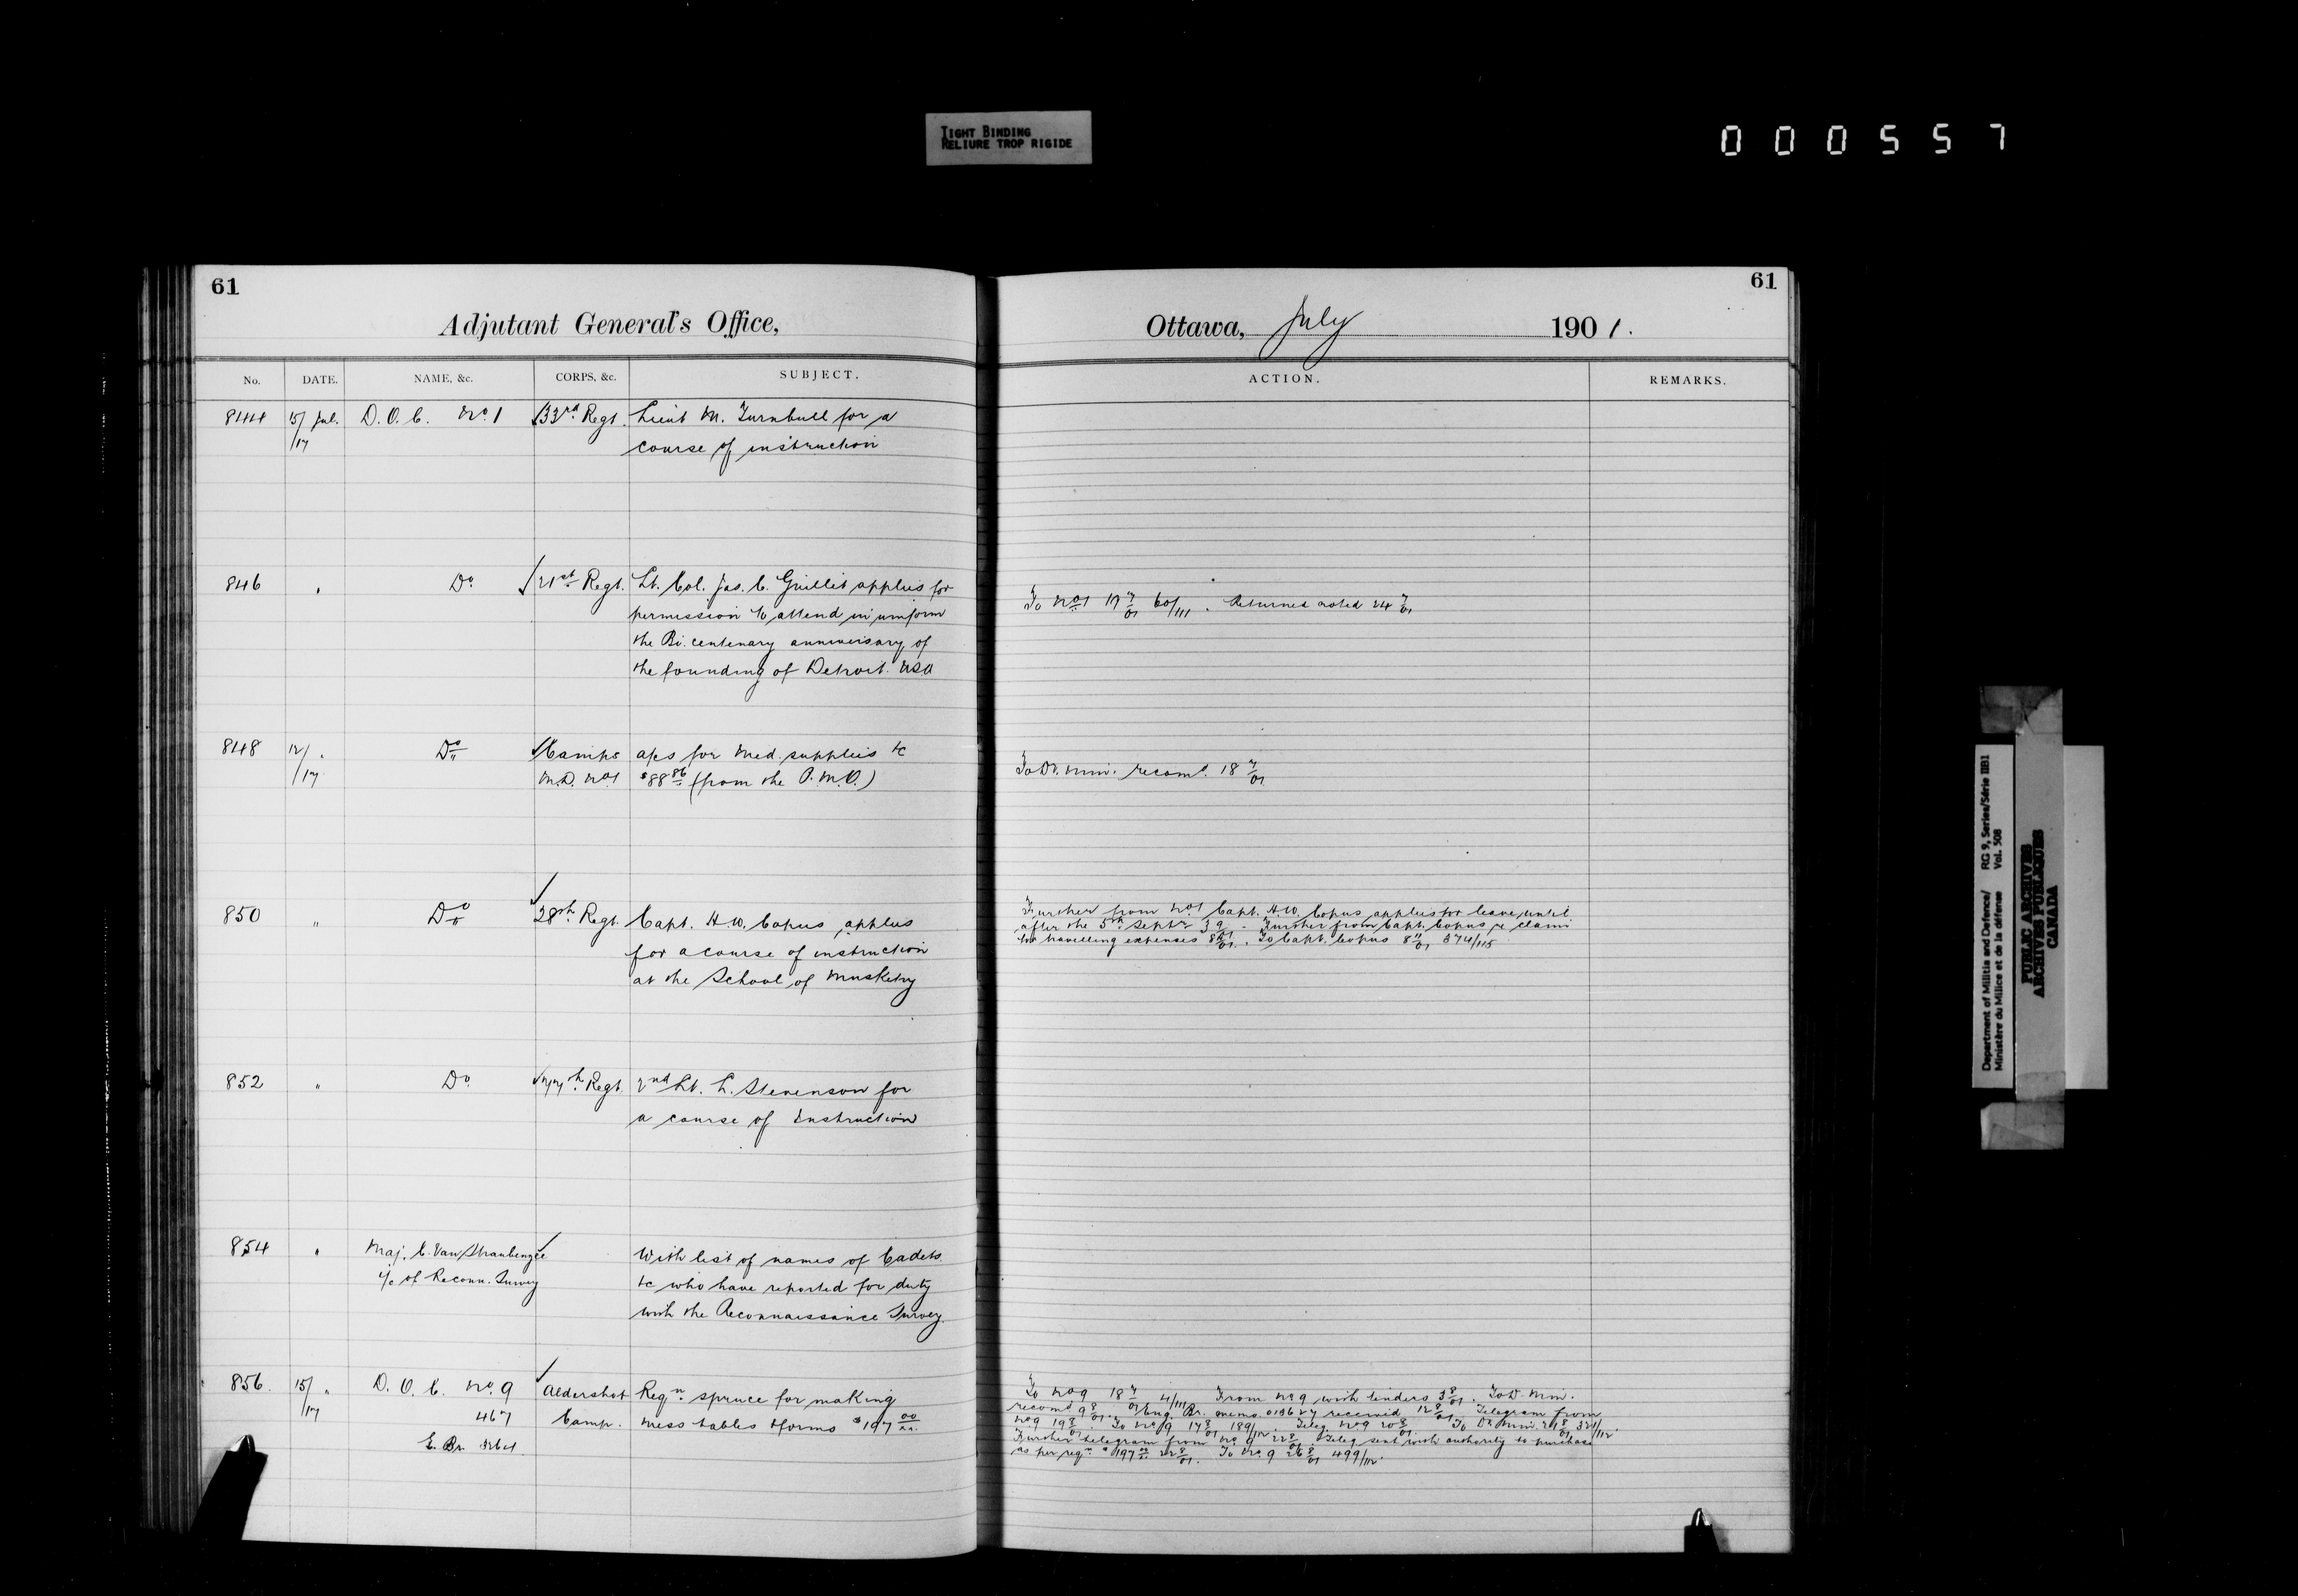 TIGHT BINDING
RELIURE TROP RIGIDE
000557
61
Adjutant General's Office,
No. DATE. NAME, &c. CORPS, &c. SUBJECT.
844 15/ Jul. D. O. C. No. 1 33rd Regt. Lieut M. Turnbull for a
/17 course of instruction
846 " Do. 21st Regt. Lt. Col. Jas. C. Guillit applies for
permission to attend in uniform
the Bi. centenary anniversary of
the founding of Detroit. USA
848 12/ " Do Camps a/cs for Med. supplies &c
/17 M.D. No 1 $88 86 (from the P.M.O.)
850 " Do 28th Regt. Capt. H. W. Copus applies
for a course of instruction
at the School of Musketry
852 " Do. 77th Regt. 2nd Lt. L. Stevenson for
a course of Instruction
854 " Maj. C. Van Straubenzee With list of names of Cadets
i/c of Reconn. Survey &c who have reported for duty
with the Reconnaissance Survey.
856. 15/ " D. O. C. No. 9 Aldershot Reqn. spruce for making
/17 467 Camp. mess tables & forms $197 00
E. Br.
61
Ottawa, July 1901.
ACTION. REMARKS.
To No 1 17 7/01 60/111. Returned noted 24 7/01
To D. Min. recomd. 18 7/01
Further from No 1 Capt. H. W. Copus applies for leave until
after the 5th Septr 3 9/01 - Further from Capt. Copus re claim
for travelling expenses 8 11/01. To Capt. Copus 8 11/01 374/115
To No 9 18 7/01 4/111 From No 9 with tenders 3 8/01. To D. Min.
recomd 9 8/01. Eng. Br. memo. received 12 8/01 Telegram from
No 9 19 8/01 To No 9 17 8/01 189/112. Teleg. No 9 20 8/01 To D. Min. 21 8/01 321/112.
Further telegram from No. 9 22 8/01 Teleg sent with authority to purchase
as per reqn $197 00 22 8/01. To No. 9 26 8/01 499/112.
Department of Militia and Defence/ RG 9, Series/Série IIB1
Ministère du Milice et de la défense Vol. 508
PUBLIC ARCHIVES
ARCHIVES PUBLIQUES
CANADA